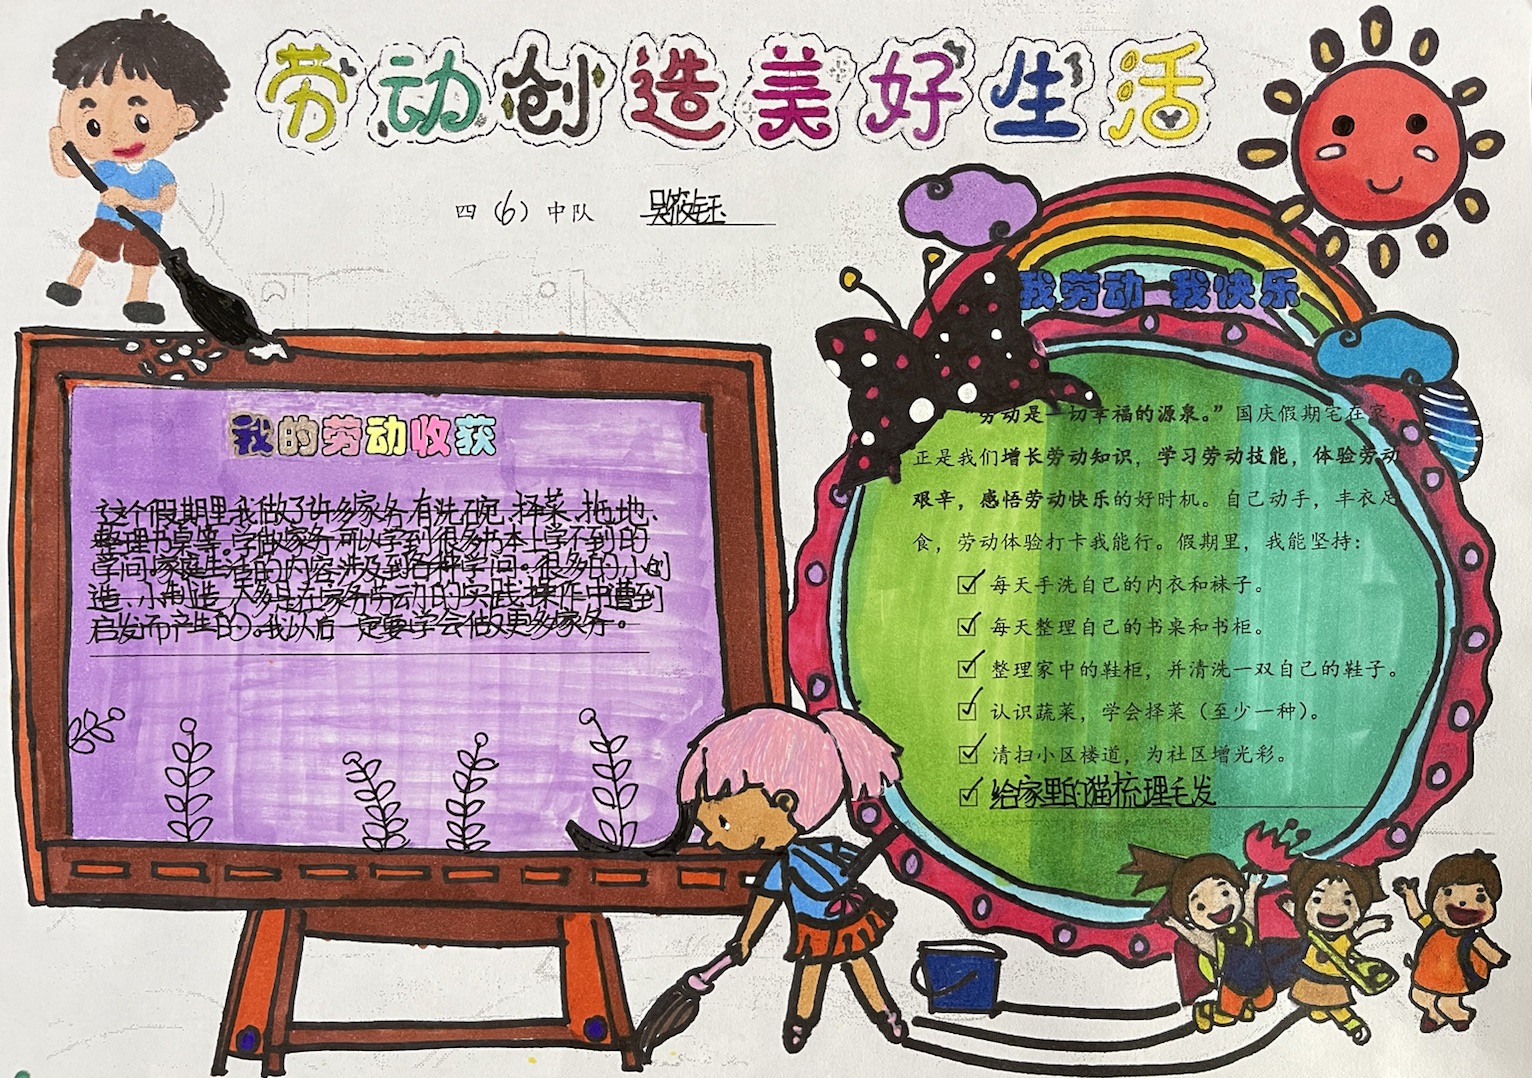 劳动创造美好生活
四（6）中队
我的劳动收获
这个假期里我做了许多家务,有洗碗、择菜、拖地、
整理书桌等。学做家务可以学到很多书本上学不到的
学问,家庭生活的内容涉及到各种学问。很多的小创
造、小制造,大多是在家务劳动的实践操作中遭到
启发而产生的。我以后一定要学会做更多家务。
我劳动 我快乐
“劳动是一切幸福的源泉。”国庆假期宅在家，
正是我们增长劳动知识，学习劳动技能，体验劳动
艰辛，感悟劳动快乐的好时机。自己动手，丰衣足
食，劳动体验打卡我能行。假期里，我能坚持：
☑ 每天手洗自己的内衣和袜子。
☑ 每天整理自己的书桌和书柜。
☑ 整理家中的鞋柜，并清洗一双自己的鞋子。
☑ 认识蔬菜，学会择菜（至少一种）。
☑ 清扫小区楼道，为社区增光彩。
☑ 给家里的猫梳理毛发